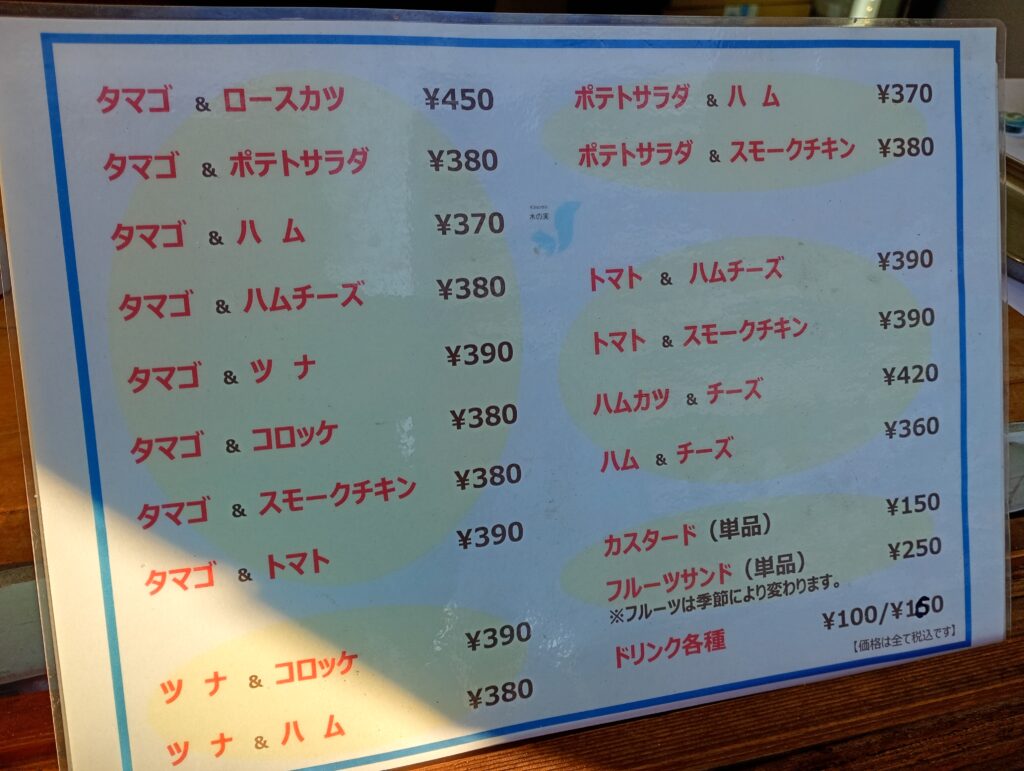 タマゴ & ロースカツ ¥450
タマゴ & ポテトサラダ ¥380
タマゴ & ハム ¥370
タマゴ & ハムチーズ ¥380
タマゴ & ツナ ¥390
タマゴ & コロッケ ¥380
タマゴ & スモークチキン ¥380
タマゴ & トマト ¥390
ツナ & コロッケ ¥390
ツナ & ハム ¥380
木の実
ポテトサラダ & ハム ¥370
ポテトサラダ & スモークチキン ¥380
トマト & ハムチーズ ¥390
トマト & スモークチキン ¥390
ハムカツ & チーズ ¥420
ハム & チーズ ¥360
カスタード（単品） ¥150
フルーツサンド（単品） ¥250
※フルーツは季節により変わります。
ドリンク各種 ¥100/¥160
【価格は全て税込です】